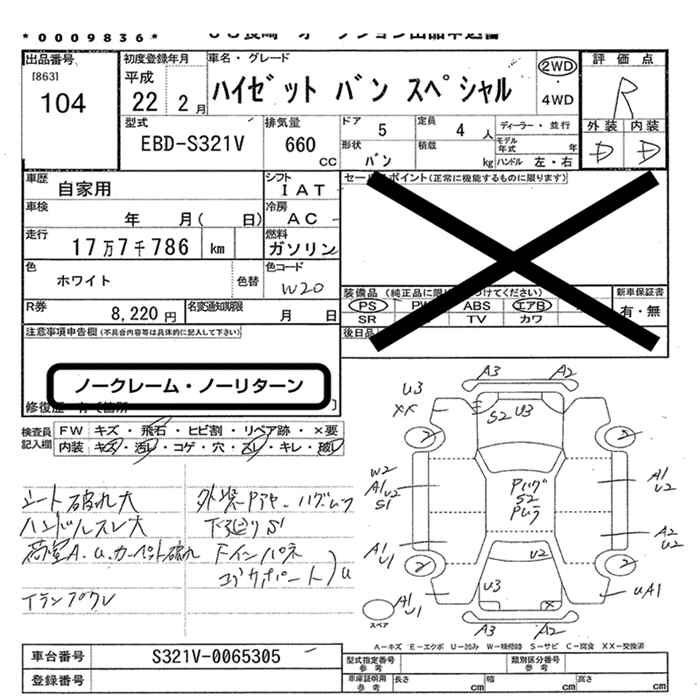 *0009836*
出品番号
[863]
104
初度登録年月
平成
22 2 月
車名・グレード
ハイゼット バン スペシャル
2WD
・
4WD
評 価 点
R
外装 内装
D D
型式
EBD-S321V
排気量
660
cc
ドア
5
定員
4 人
形状
バン
積載
kg
ディーラー・並行
モデル年式 年
ハンドル 左・右
車歴
自家用
シフト
IAT
車検
年 月( 日)
冷房
AC
走行
17万7千786 km
燃料
ガソリン
色
ホワイト
色替
色コード
W20
R券
8,220 円
名変通知期限
月 日
セールスポイント(正常に機能するものに限ります)
装備品
PS
ABS
エアB
SR
TV
カワ
新車保証書
有・無
後日品
注意事項申告欄(不具合内容等は具体的に記入して下さい)
ノークレーム・ノーリターン
検査員記入欄
FW キズ・飛石・ヒビ割・リペア跡・×要
内装 キズ・汚レ・コゲ・穴・スレ・キレ・破レ
シート破れ大
ハンドルスレ大
荷室A.U.カーペット破れ
下回りS1
Fインパネ
A3 A2
U3
XX
S2 U3
2 2
W2
A1 U2
S1
A1
U2
S2
A2
U2
A1
U1
U2
2 2
U3
X
UA1
A1
U1
スペア
A3 A2
A－キズ E－エクボ U－凹み W－補修跡 S－サビ C－腐食 XX－交換済
車台番号 S321V-0065305
登録番号
型式指定番号
参考
類別区分番号
参考
車庫証明用
参考
長さ cm 幅 cm 高さ cm